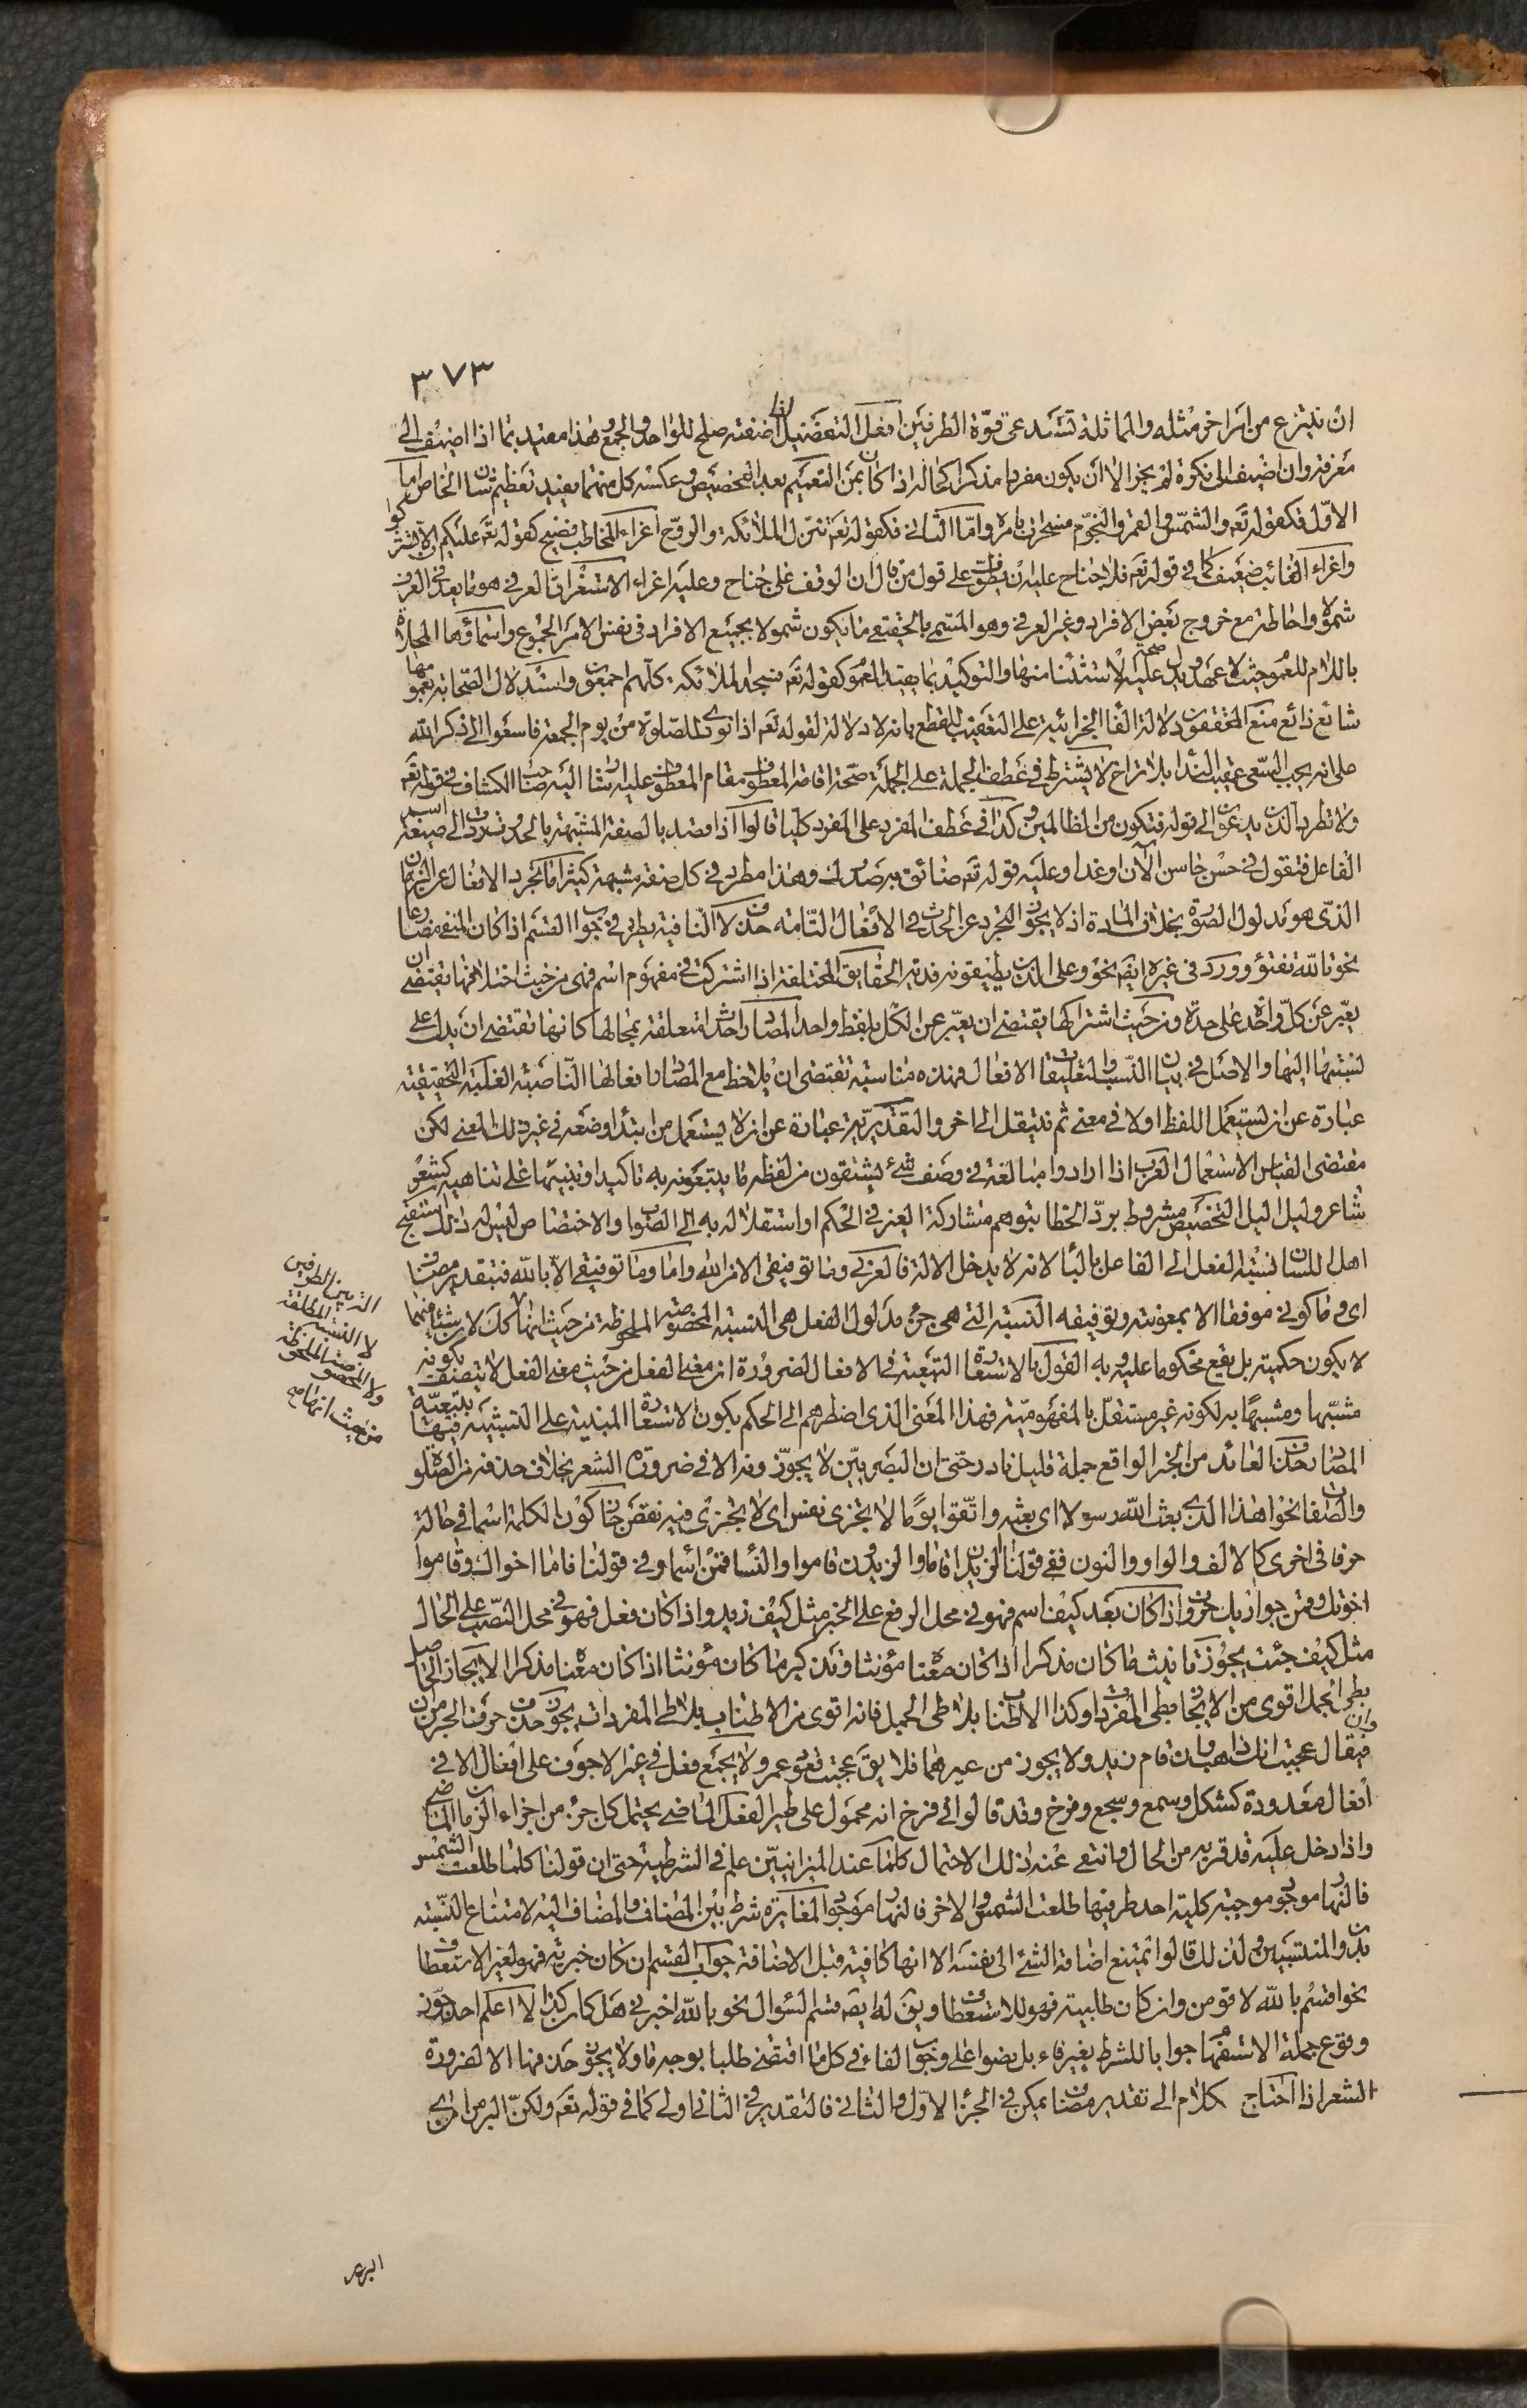 ٣٧٣
ان ينتزع من امر اخر مثله والمماثلة تستدعى قوّة الطرفين افعل التفضيل اذا اضفته صلح للواحد والجمع وهذا مقيد بما اذا اضيف الى
معرفة وان اضيف الى نكرة لم يجز الا ان يكون مفردا مذكرا كحاله اذا كان بمن التعميم بعد التخصيص وعكسه كل منهما يفيد تعظيم شان الخاص اما
الاوّل فكقوله تعه والشمس والقمر والنجوم مسخرات بامره وامّا الثانى فكقوله تعه تنزل الملائكة والروح اغراء المخاطب فصيح كقوله تعه عليكم ان لا تشركوا
واغراء الغائب ضعيف كما فى قوله تعه فلا جناح عليه ان يطوف على قول من قال ان الوقف على جناح وعليه اغراء الاستغراق العرفى هو ما يعد فى العرف
شمولا واحاطة مع خروج بعض الافراد وغير العرفى وهو المسمى بالحقيقى ما يكون شمولا بجميع الافراد فى نفس الامر الجموع واسماؤها المحلاة
باللام للعموم حيث لا عهد ويدل عليه صحة الاستثنا منها والتوكيد بما يفيد العموم كقوله تعه فسجد الملائكه كلهم اجمعون واستدلال الصحابة بعمومها
شائع ذائع منع المحققون دلالة الفا الجزائية على التعقيب للقطع بانه لا دلالة لقوله تعه اذا نودى للصلوة من يوم الجمعة فاسعوا الى ذكر الله
على انه يجب السعى عقيب الندا بلا تراخ لا يشترط فى عطف الجملة على الجملة صحة اقامة المعطوف مقام المعطوف عليه اشار اليه صاحب الكشاف فى قوله تعه
ولا تطرد الذين يدعون الى قوله فتكون من الظالمين وكذا فى عطف المفرد على المفرد كليا قالوا اذا قصد بالصفة المشبهة بالحدوث ترد الى صيغة اسم
الفاعل فتقول فى حسن حاسن الآن او غدا وعليه قوله تعه ضائق به صدرك وهذا مطرد فى كل صفة مشبهة كثيرا ما تجرد الافعال عن الزمان
الذى هو مدلول الصورة بخلاف المادة اذ لا يجوز التجرد عن الحدث فى الافعال التامة حذف لا النافية يطرد فى جواب القسم اذا كان المنفى مضارعا
نحو تالله تفتؤ وورد فى غيره ايضه نحو وعلى الذين يطيقونه فدية الحقايق المختلفة اذا اشتركت فى مفهوم اسم فهى من حيث اختلافها تقتضى ان
يعبّر عن كلّ واحد على حدة ومن حيث اشتراكها يقتضى ان يعبّر عن الكل بلفظ واحد المصادر احداث متعلقة بمحالها كانها تقتضى ان يدل على
نسبتها اليها والاصل فى بيان النسب والتعليقات الافعال فهذه مناسبة تقتضى ان يلاحظ مع المصادر افعالها الناصبة الغلبة التحقيقية
عبارة عن ان يستعمل اللفظ اولا فى معنى ثم ينتقل الى اخر والتقديرية عبارة عن ان لا يستعمل من ابتدا وضعه فى غير ذلك المعنى لكن
مقتضى القياس الاستعمال العرب اذا ارادوا مبالغة فى وصف شئ يشتقون من لفظه ما يتبعونه به تاكيدا وتنبيها على تناهيه كشعر
شاعر وليل اليل التخصيص مشروط بردّ الخطا بتوهم مشاركة الغير فى الحكم او استقلاله به الى الصواب والاختصاص ليس له ذلك استقبح
اهل اللسان نسبة الفعل الى الفاعل بالبا لانه لا يدخل الالة فالعزكى وما توفيقى الا من الله واما وما توفيقى الا بالله فبتقدير مضاف
اى وما كونى موفقا الا بمعونته وتوفيقه النسبة التى هى جزء مدلول الفعل هى النسبة المخصوصة الملحوظة من حيث انها
لا يكون حكمية بل يقع محكوما عليه وبه القول بالاستعارة التبعية فى الافعال لضرورة ان معنى الفعل من حيث معنى الفعل لا يتصف بكونه
مشبّها ومشبها به لكونه غير مستقل بالمفهومية فهذا المعنى الذى اضطرهم الى الحكم بكون الاستعارة المبنية على التشبيه فيها تبعيّة
المضارع حذف العائد من الخبر الواقع جملة قليل نادر حتى ان البصريين لا يجوّزونه الا فى ضرورة الشعر بخلاف حذفه من الصلة
والصفة نحو اهذا الذى بعث الله رسولا اى بعثه واتّقوا يوما لا تجزى نفس اى لا تجزى فيه كون الكلمة اسما فى حالة
حرفا فى اخرى كالالف والواو والنون ففى قولنا الزيدان قاما والزيدون قاموا والنسا قمن اسماء وفى قولنا قاما اخواك وقاموا
اخوتك وقمن جواريك حروف واذا كان بعد كيف اسم فهو فى محل الرفع على الخبر مثل كيف زيد واذا كان فعل فهو فى محل النصب على الحال
مثل كيف جئت يجوز تانيث ما كان مذكرا اذا كان معناه مؤنثا وتذكير ما كان مؤنثا اذا كان معناه مذكرا الايجاز الحاصل
بطى الجمل اقوى من الايجاز بطى المفردات وكذا الاطناب بلا طى الجمل فانه اقوى من الاطناب بلا طى المفردات يجوز حذف حرف الجر من ان وان
فيقال عجبت انك ذاهب وان قام زيد ولا يجوز من غيرهما فلا يقه عجبت قعود عمرو لا يجمع فعل فى غير الاجوف على افعال الا فى
افعال معدودة كشكل وسمع وسجع وفرخ وقد قالوا فى فرخ انه محمول على طير الفعل الماضى يحتمل كل جزء من اجزاء الزمان الماضى
واذا دخل عليه قد قربه من الحال وانتفى عنه ذلك الاحتمال كلما عند الميزانيين علم فى الشرطية حتى ان قولنا كلما طلعت الشمس
فالنهار موجود موجبة كلية احد طرفيها طلعت الشمس والاخر فالنهار موجود المغايرة شرط بين المضاف والمضاف اليه لامتناع النسبة
بدون المنتسبين ولذلك قالوا يمتنع اضافة الشئ الى نفسه الا انها كافية قبل الاضافة جواب القسم ان كان خبرية فهو لغير الاستعطاف
نحو اقسم بالله لاقومن وان كان طلبية فهو للاستعطاف ويقه له ايضه قسم السؤال نحو بالله اخبرنى هل كان كذا لا اعلم احدا جوّز
وقوع جملة الاستفهام جوابا للشرط بغير فاء بل نصوا على وجوب الفاء فى كل ما اقتضى طلبا بوجه ما ولا يجوز حذفها الا لضرورة
الشعر اذا احتاج كلام الى تقدير مضاف يمكن فى الجزء الاوّل والثانى فالتقدير فى الثانى اولى كما فى قوله تعه ولكنّ البر من امن اى
لا النسبة المطلقة
البر بر